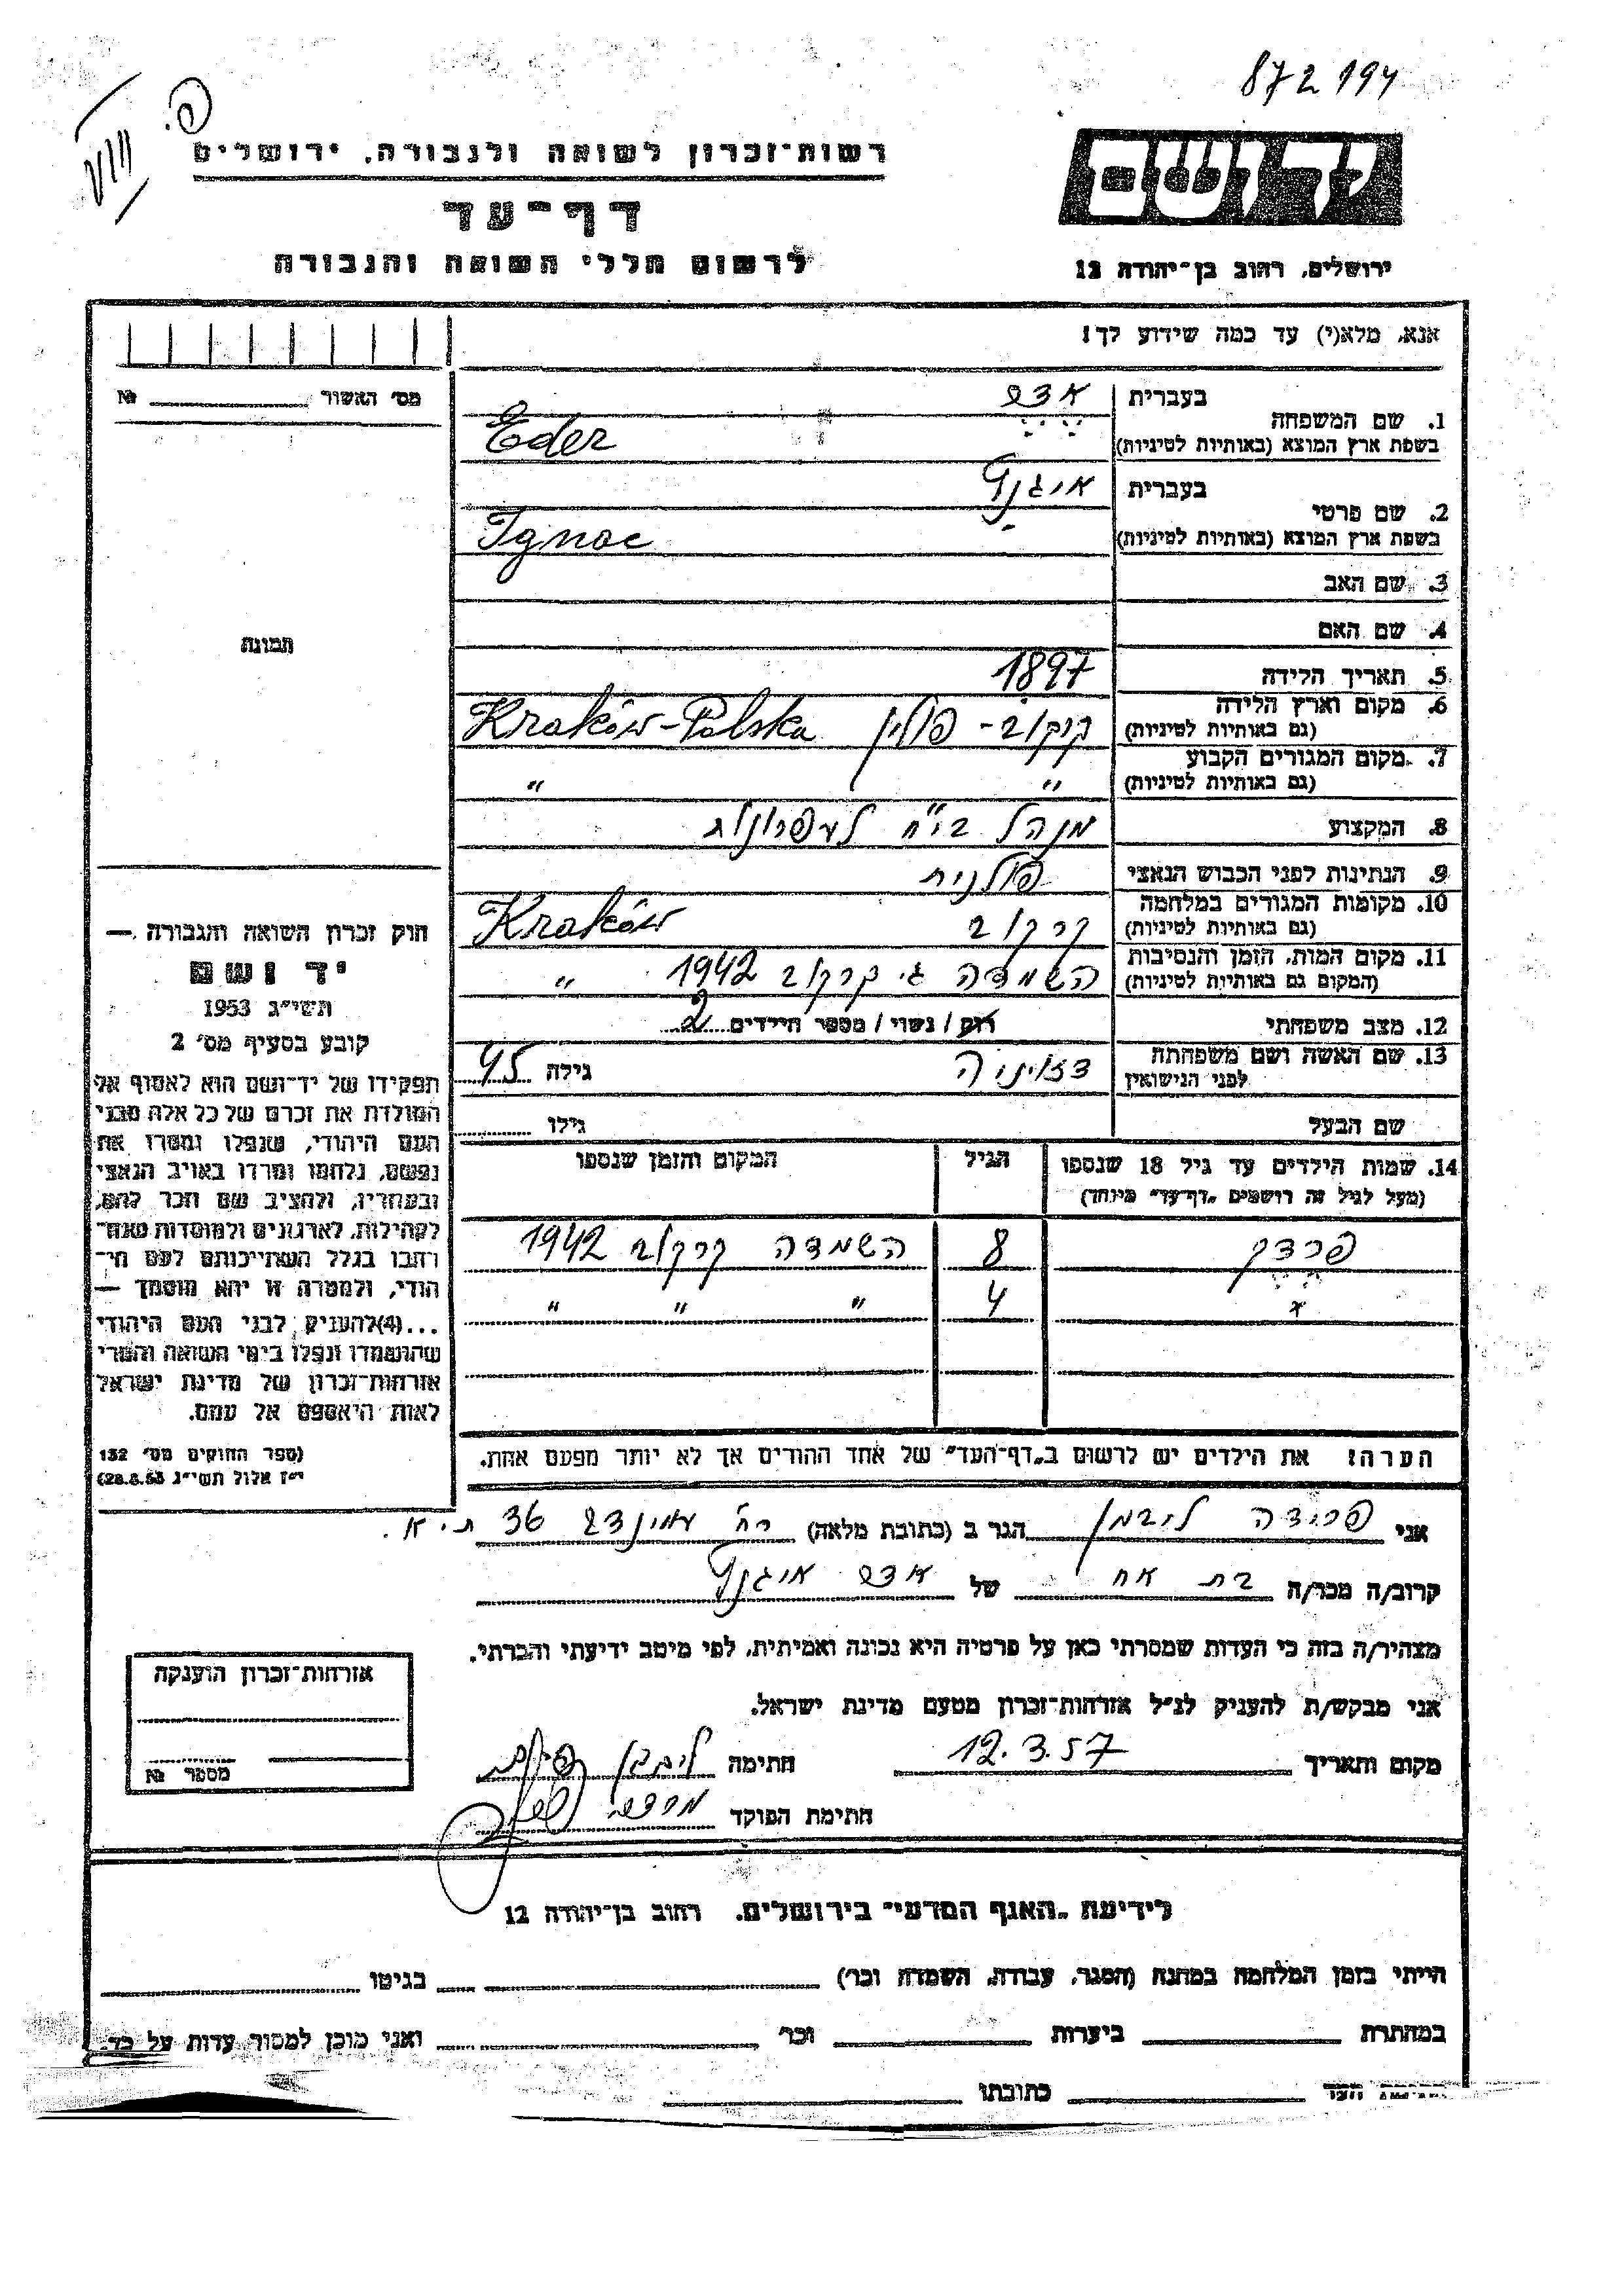 872194
פ.
רשות־זכרון לשואה ולגבורה, ירושלים
דף־עד
לרשום חללי השואה והגבורה
יד ושם
ירושלים, רחוב בן־יהודה 12
אנא, מלא(י) עד כמה שידוע לך!
מס׳ האשור № ____
תמונה
1. שם המשפחה
בעברית אדר
בשפת ארץ המוצא (באותיות לטיניות) Eder
2. שם פרטי
בעברית איגנץ
בשפת ארץ המוצא (באותיות לטיניות) Ignac
3. שם האב
4. שם האם
5. תאריך הלידה 1897
6. מקום וארץ הלידה
(גם באותיות לטיניות) קרקוב - פולין Kraków-Polska
7. מקום המגורים הקבוע
(גם באותיות לטיניות) " "
8. המקצוע מנהל בי"ח לעפרונות
9. הנתינות לפני הכבוש הנאצי פולנית
10. מקומות המגורים במלחמה
(גם באותיות לטיניות) קרקוב Kraków
11. מקום המות, הזמן והנסיבות
(המקום גם באותיות לטיניות) השמדה ג׳ קרקוב 1942 "
12. מצב משפחתי רוק / נשוי / מספר הילדים 2
13. שם האשה ושם משפחתה
לפני הנישואין גילה 45
שם הבעל גילו
14. שמות הילדים עד גיל 18 שנספו
(מעל לגיל זה רושמים „דף־עד” מיוחד)
הגיל
המקום והזמן שנספו
פרדק 8 השמדה קרקוב 1942
× 4 " " "
הערה: את הילדים יש לרשום ב„דף־העד” של אחד ההורים אך לא יותר מפעם אחת.
חוק זכרון השואה והגבורה —
יד ושם
תשי״ג 1953
קובע בסעיף מס׳ 2
תפקידו של יד־ושם הוא לאסוף אל
המולדת את זכרם של כל אלה מבני
העם היהודי, שנפלו ומסרו את
נפשם, נלחמו ומרדו באויב הנאצי
ובעוזריו, ולהציב שם וזכר להם,
לקהילות, לארגונים ולמוסדות שנח־
רחבו בגלל השתייכותם לעם הי־
הודי, ולמטרה זו יהא מוסמך —
...(4)להעניק לבני העם היהודי
שהושמדו ונפלו בימי השואה והמרי
אזרחות־זכרון של מדינת ישראל
לאות היאספם אל עמם.
(ספר החוקים מס׳ 132
י״ז אלול תשי״ג 28.8.53)
אני פרידה ליבמן הגר ב (כתובת מלאה) רח׳ עמינדב 36 ת.א.
קרוב/ה מכר/ה בת אח של אדר איגנץ
מצהיר/ה בזה כי העדות שמסרתי כאן על פרטיה היא נכונה ואמיתית, לפי מיטב ידיעתי והכרתי.
אני מבקש/ת להעניק לנ״ל אזרחות־זכרון מטעם מדינת ישראל.
מקום ותאריך 12.3.57 חתימה
חתימת הפוקד
אזרחות־זכרון הוענקה
מספר №
לידיעת „האגף המדעי” בירושלים. רחוב בן־יהודה 12
הייתי בזמן המלחמה במחנה (הסגר, עבודה, השמדה וכו׳) ____ בגיטו ____
במחתרת ____ ביערות ____ וכו׳ ____ ואני מוכן למסור עדות על כך.
חתימת העד ____ כתובתו ____